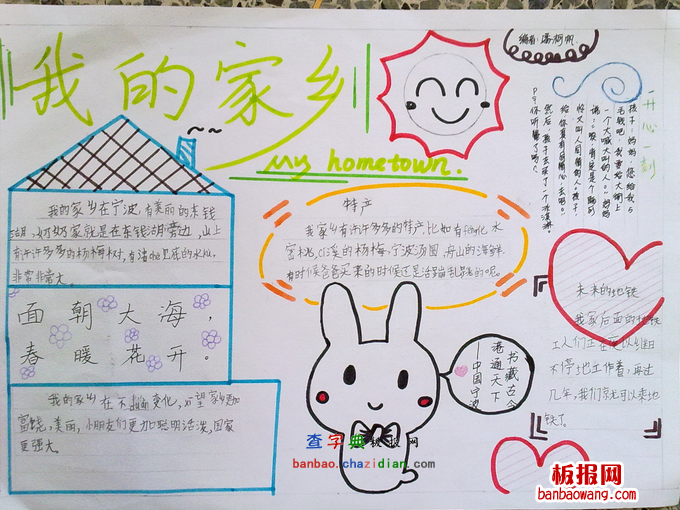 我的家乡
My hometown.
编者:潘柯帆
我的家乡在宁波,有美丽的东钱
湖,奶奶家就是在东钱湖旁边,山上
有许许多多的杨梅树,有清che见底的水山,
非常非常大。
面朝大海,
春暖花开。
我的家乡在不断变化,
富饶,美丽,小朋友们更加聪明活泼,国家
更强大。
特产
我家乡有许许多多的特产比如有fèng化水
密桃,cí溪的杨梅,宁波汤圆,舟山的海鲜
有时候爸爸买来的时候还是活蹦乱跳的呢。
书藏古今
港通天下
—中国宁波
开心一刻
孩子:妈妈,您给我5
毛钱吧,我要给大街上
一个大喊大叫的人。妈妈
然后,孩子去买了一个冰淇淋。
未来的地铁
我家后面的地铁
工人们正在夜以继日
不停地工作着,再过
几年,我们就可以乘地
铁了。
查字典板报网
banbao.chazidian.com
板报网
banbaowang.com